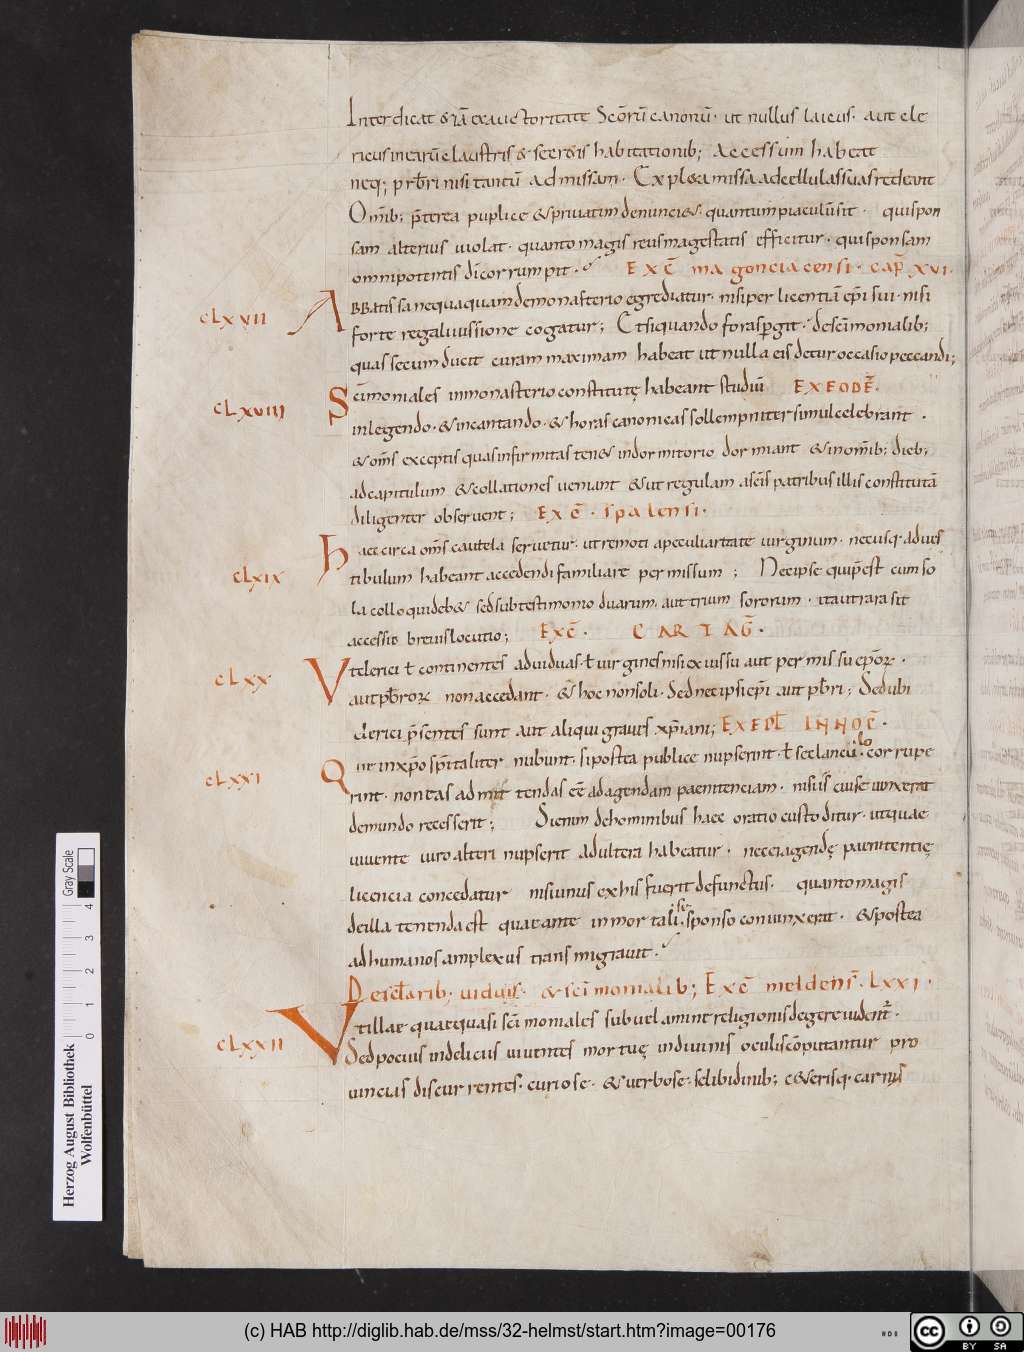 Interdicat &iā exauctoritate Scōrū canonū · ut nullus laicus · aut cle
ricus inearū claustris & secr&is habitationib; accessum habeat
neq; prb̄ri nisi tantū admissam · Expl&a missa adecclulas suas redeant
Om̄ib; p̄terea puplice &priuatim denunci&· quantum piaculū sit · quispon
sam alterius uiolat · quanto magis reus magestatis efficitur · qui sponsam
omnipotentis dī corrumpit ·
EXC̄ magonciacensi · cap̄ XVI ·
CLXVII
Abbatissa nequaquam demonasterio egrediatur · nisi per licentiā ep̄i sui · nisi
forte regali iussione cogatur; Et si quando foras p̄git · de scīmonialib;
quas secum ducit curam maximam habeat ut nulla eis detur occasio peccandi;
CLXVIII
Scīmoniales inmonasterio constitutę habeant studiū
EX EODĒ ·
inlegendo · &incantando · &horas canonicas sollempniter simul celebrant ·
&om̄s exceptis quas infirmitas ten& indormitorio dormiant &inom̄ib; dieb;
ad capitulum &collationes ueniant &ut regulam ascīs patribus illis constitutā
diligenter obseruent;
EXC̄ · spalensi ·
CLXIX
Haec circa om̄s cautela seruetur · ut remoti apeculiaritate uirginum · nec usq· aduęs
tibulum habeant accedendi familiare permissum ; Nec ipse qui p̄est cum so
la colloqui deb& sed sub testimonio duarum · aut trium sororum · ita ut rara sit
accessio breuis locutio;
EXC̄ · CARTAG̅ ·
CLXX
Vt clerici ł continentes aduiduas · ł uirgines nisi ex iussu aut permissu ep̄oꝝ ·
aut pb̄roꝝ non accedant · &hoc non soli · Sed nec ipsi ep̄i aut pb̄ri; Sed ubi
clerici p̄sentes sunt aut aliqui graues xp̄iani;
EX EPL̄ INNOC̄ ·
CLXXI
Que inxp̄o sp̄italiter nubunt · si postea publice nupserint · ł se clanculo corrupe
rint · non eas admittendas eē ad agendam paenitenciam · nisi is cui se iunxerat
de mundo recesserit; Si enim de hominibus haec oratio custoditur · ut quae
uiuente uiro alteri nupserit adultera habeatur · nec ei agendę paenitentię
licencia concedatur nisi unus ex his fuerit defunctus · quanto magis
de illa tenenda est quae ante inmortali se sponso coniunxerat · &postea
ad humanos amplexus transmigrauit ·
De uelatib; uiduis · & scīmonialib; Exc̄ meldens̄ · LXXI ·
CLXXII
Vt illae quae quasi scīmoniales sub uelamine religionis degere uident̄ ·
Sed pocius indeliciis uiuentes mortuę indiuinis oculis cōputantur pro
uincias discurrentes · curiose · &uerbose · se libidinib; c&erisq· carnis
Herzog August Bibliothek
Wolfenbüttel
0 1 2 3 4
Gray Scale
(c) HAB http://diglib.hab.de/mss/32-helmst/start.htm?image=00176
cc BY SA